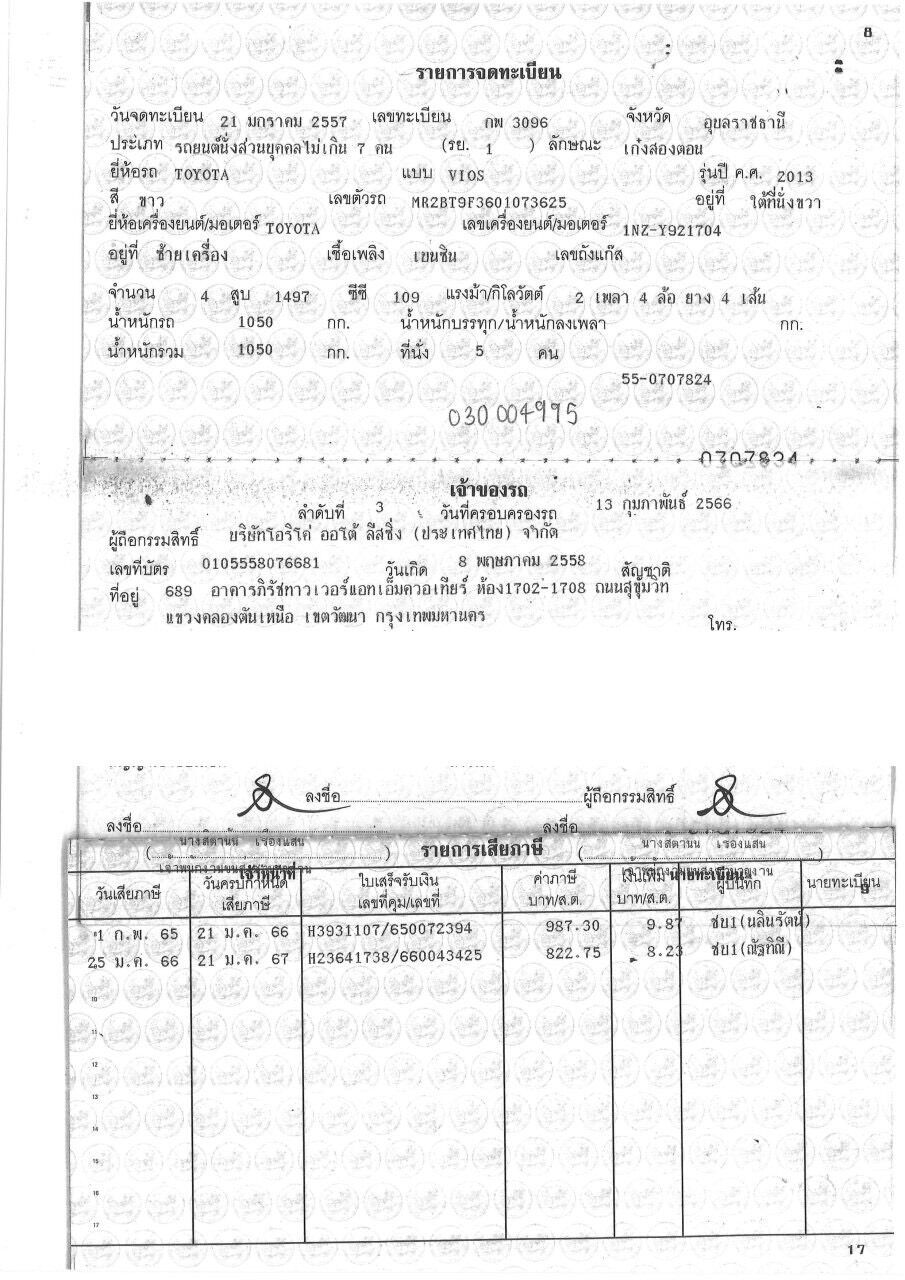 8
รายการจดทะเบียน
วันจดทะเบียน 21 มกราคม 2557 เลขทะเบียน กพ 3096 จังหวัด อุบลราชธานี
ประเภท รถยนต์นั่งส่วนบุคคลไม่เกิน 7 คน (รย. 1 ) ลักษณะ เก๋งสองตอน
ยี่ห้อรถ TOYOTA แบบ VIOS รุ่นปี ค.ศ. 2013
สี ขาว เลขตัวรถ MR2BT9F3601073625 อยู่ที่ ใต้ที่นั่งขวา
ยี่ห้อเครื่องยนต์/มอเตอร์ TOYOTA เลขเครื่องยนต์/มอเตอร์ 1NZ-Y921704
อยู่ที่ ซ้ายเครื่อง เชื้อเพลิง เบนซิน เลขถังแก๊ส
จำนวน 4 สูบ 1497 ซีซี 109 แรงม้า/กิโลวัตต์ 2 เพลา 4 ล้อ ยาง 4 เส้น
น้ำหนักรถ 1050 กก. น้ำหนักบรรทุก/น้ำหนักลงเพลา กก.
น้ำหนักรวม 1050 กก. ที่นั่ง 5 คน
55-0707824
030004995
0707834
เจ้าของรถ
ลำดับที่ 3 วันที่ครอบครองรถ 13 กุมภาพันธ์ 2566
ผู้ถือกรรมสิทธิ์ บริษัทโอริโค่ ออโต้ ลีสซิ่ง (ประเทศไทย) จำกัด
เลขที่บัตร 0105558076681 วันเกิด 8 พฤษภาคม 2558 สัญชาติ
ที่อยู่ 689 อาคารภิรัชทาวเวอร์แอทเอ็มควอเทียร์ ห้อง1702-1708 ถนนสุขุมวิท
แขวงคลองตันเหนือ เขตวัฒนา กรุงเทพมหานคร โทร.
ลงชื่อ ผู้ถือกรรมสิทธิ์
ลงชื่อ ลงชื่อ
(นางสีดานัน เรืองแสน) รายการเสียภาษี (นางสีดานัน เรืองแสน)
เจ้าหน้าที่ นายทะเบียน
วันเสียภาษี วันครบกำหนดเสียภาษี ใบเสร็จรับเงิน เลขที่คุม/เลขที่ ค่าภาษี บาท/ส.ต. เงินเพิ่ม บาท/ส.ต. ผู้บันทึก นายทะเบียน
1 ก.พ. 65 21 ม.ค. 66 H3931107/650072394 987.30 9.87 ชบ1(นลินรัตน์)
25 ม.ค. 66 21 ม.ค. 67 H23641738/660043425 822.75 8.23 ชบ1(ณัฐทิณี)
10
11
12
13
14
15
16
17
17